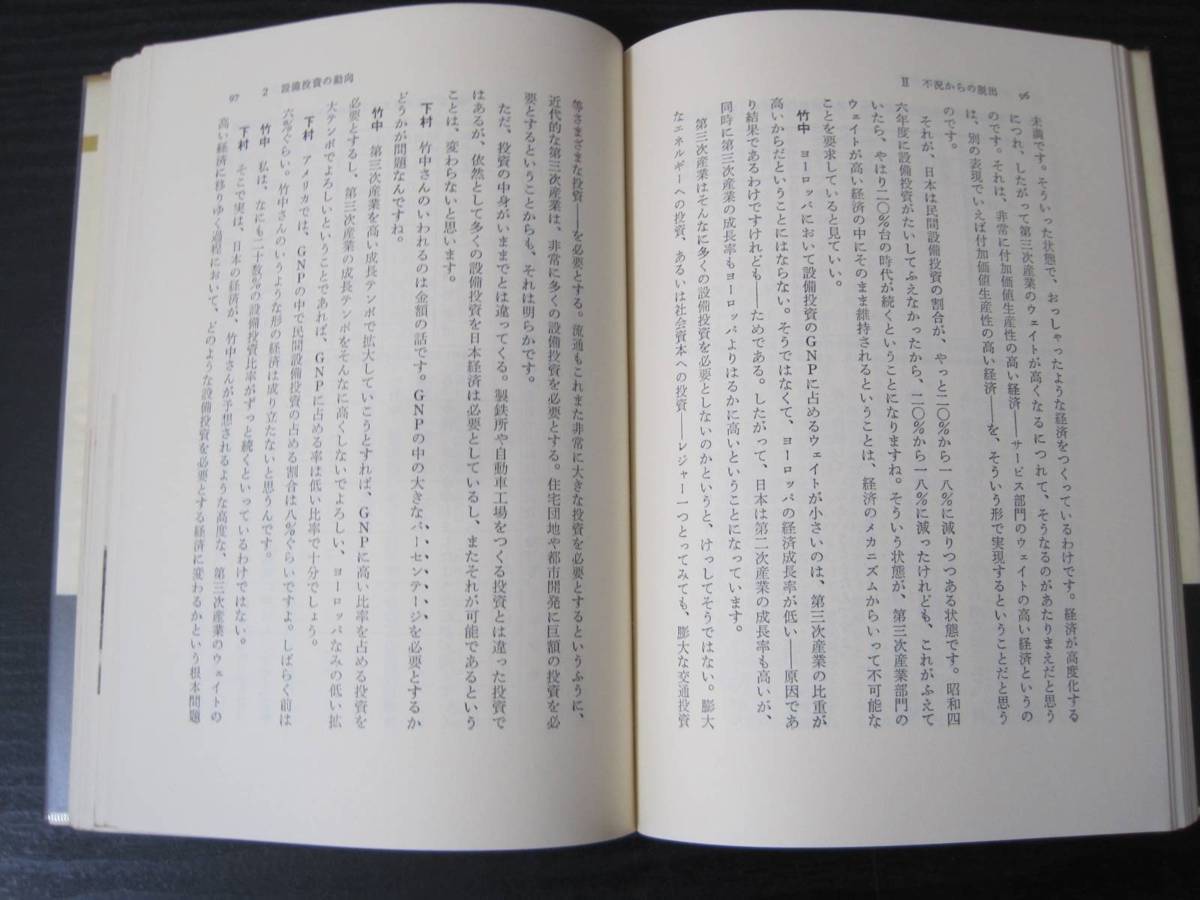 96
Ⅱ 不況からの脱出
未満です。そういった状態で、おっしゃったような経済をつくっているわけです。経済が高度化する
につれ、したがって第三次産業のウェイトが高くなるにつれて、そうなるのがあたりまえだと思う
のです。それは、非常に付加価値生産性の高い経済――サービス部門のウェイトの高い経済というの
は、別の表現でいえば付加価値生産性の高い経済――を、そういう形で実現するということだと思う
のです。
それが、日本は民間設備投資の割合が、やっと二〇％から一八％に減りつつある状態です。昭和四
六年度に設備投資がたいしてふえなかったから、二〇％から一八％に減ったけれども、これがふえて
いたら、やはり二〇％台の時代が続くということになりますね。そういう状態が、第三次産業部門の
ウェイトが高い経済の中にそのまま維持されるということは、経済のメカニズムからいって不可能な
ことを要求していると見ていい。
竹中 ヨーロッパにおいて設備投資のGNPに占めるウェイトが小さいのは、第三次産業の比重が
高いからだということにはならない。そうではなくて、ヨーロッパの経済成長率が低い――原因であ
り結果であるわけですけれども――ためである。したがって、日本は第二次産業の成長率も高いが、
同時に第三次産業の成長率もヨーロッパよりはるかに高いということになっています。
第三次産業はそんなに多くの設備投資を必要としないのかというと、けっしてそうではない。膨大
なエネルギーへの投資、あるいは社会資本への投資――レジャー一つとってみても、膨大な交通投資
等さまざまな投資――を必要とする。流通もこれまた非常に大きな投資を必要とするというふうに、
近代的な第三次産業は、非常に多くの設備投資を必要とする。住宅団地や都市開発に巨額の投資を必
要とするということからも、それは明らかです。
ただ、投資の中身がいままでとは違ってくる。製鉄所や自動車工場をつくる投資とは違った投資で
はあるが、依然として多くの設備投資を日本経済は必要としているし、またそれが可能であるという
ことは、変わらないと思います。
下村 竹中さんのいわれるのは金額の話です。GNPの中の大きなパーセンテージを必要とするか
どうかが問題なんですね。
竹中 第三次産業を高い成長テンポで拡大していこうとすれば、GNPに高い比率を占める投資を
必要とするし、第三次産業の成長テンポをそんなに高くしないでよろしい、ヨーロッパなみの低い拡
大テンポでよろしいということであれば、GNPに占める率は低い比率で十分でしょう。
下村 アメリカでは、GNPの中で民間設備投資の占める割合は八％ぐらいですよ。しばらく前は
六％ぐらい。竹中さんのいうような形の経済は成り立たないと思うんです。
竹中 私は、なにも二十数％の設備投資比率がずっと続くといっているわけではない。
下村 そこで実は、日本の経済が、竹中さんが予想されるような高度な、第三次産業のウェイトの
高い経済に移りゆく過程において、どのような設備投資を必要とする経済に変わるかという根本問題
2 設備投資の動向
97